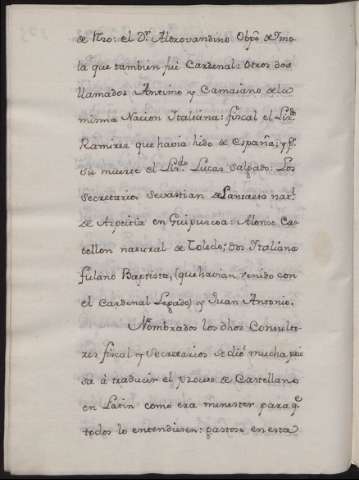 de Nro: el Dr. Aldrovandino Obpo. de Imo
la que tambien fué Cardenal: Otros dos
llamados Antino y Camaiano de la
misma Nacion Italiana: fiscal el Lizdo.
Ramirez que havia hido de España; y pr.
su muerte el Lizdo. Lucas Salgado: Los
Secretarios Sevastian de Lantario natl.
de Azpeitia en Guipuscoa: Alonso Cas
tellon natural de Toledo; dos Italiano
fulano Baptista, (que havian venido con
el Cardenal Legado) y Juan Antonio.
Nombrados los dhos Consulto
res fiscal y Secretarios se dió mucha pri
sa á traducir el proceso de Castellano
en Latin como era menester para q.
todos lo entendiesen: gastose en esta